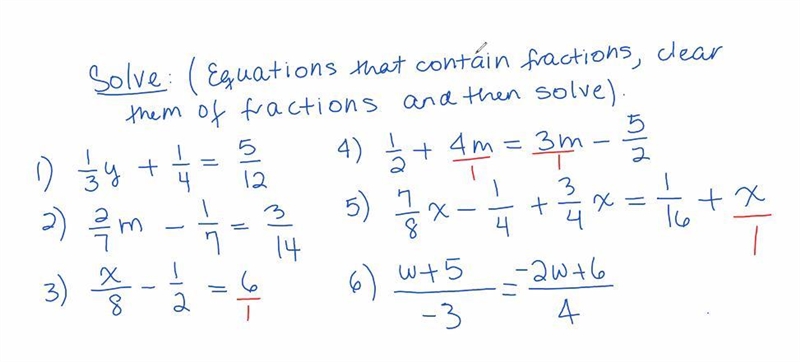 Solve: (Equations that contain fractions, clear
them of fractions and then solve).
1) 1/3 y + 1/4 = 5/12
2) 2/7 m - 1/7 = 3/14
3) x/8 - 1/2 = 6/1
4) 1/2 + 4m/1 = 3m/1 - 5/2
5) 7/8 x - 1/4 + 3/4 x = 1/16 + x/1
6) w+5/-3 = -2w+6/4